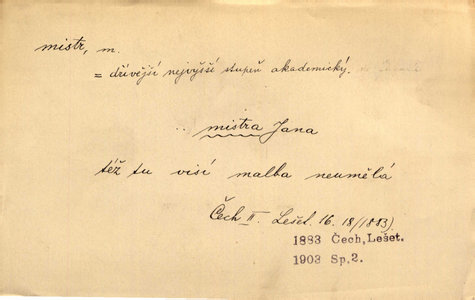 mistr, m.
= dřívější nejvyšší stupeň akademický.
.. mistra Jana
též tu visí malba neumělá
Čech II. Lešet. 16. 18/1883)
1883 Čech,Lešet.
1903 Sp.2.